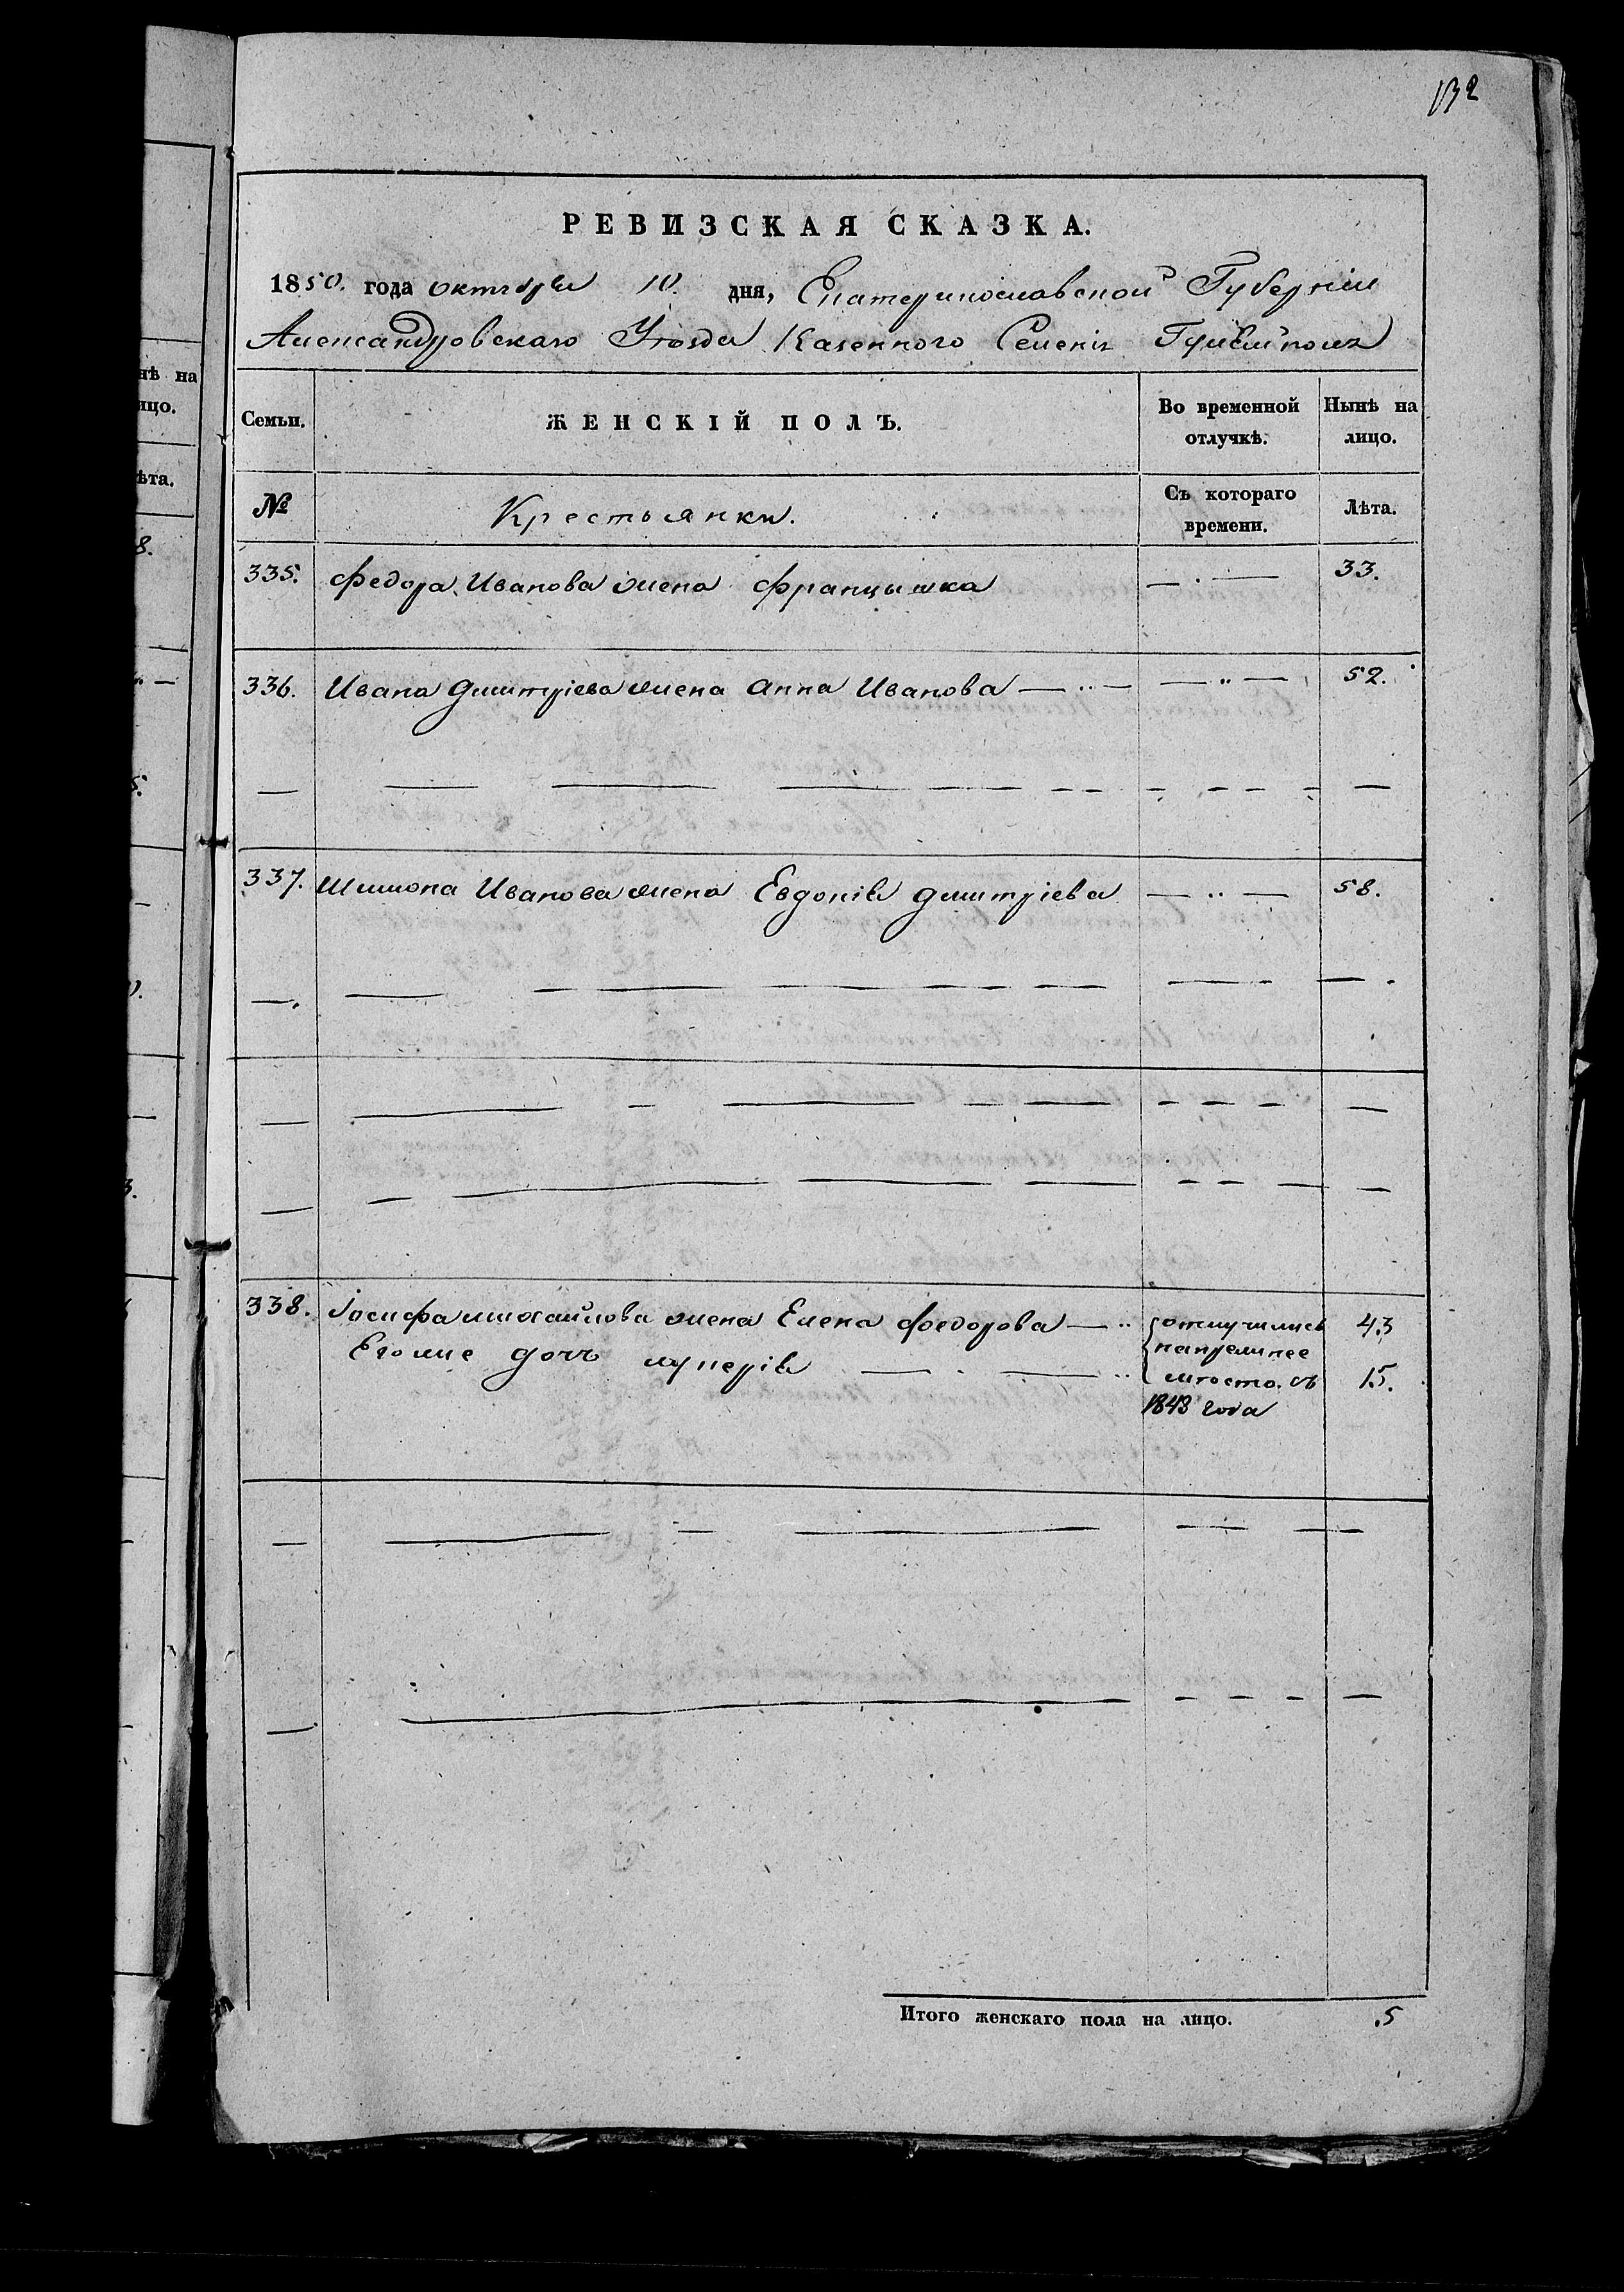 132
РЕВИЗСКАЯ СКАЗКА.
1850. года октября 10. дня, Екатеринославской Губерніи
Александровскаго Уѣзда Казенного Селенія Гуляйполя
нѣ на
ицо.
ѣта.
8.
Семьи.
ЖЕНСКІЙ ПОЛЪ.
Во временной отлучкѣ.
Нынѣ на лицо.
№
Крестьянки.
Съ котораго времени.
Лѣта.
335. Федора Иванова жена Францышка — . — 33.
336. Ивана Дмитріева жена Анна Иванова — .. — — „ — 52.
337. Шимона Иванова жена Евдокія Дмитріева — .. — 58.
338. Іосифа Михайлова жена Елена Федорова — .. отлучились 43
напрежнее
Его же дочь — . — .. мѣсто. съ 15.
1848 года
Итого женскаго пола на лицо. 5